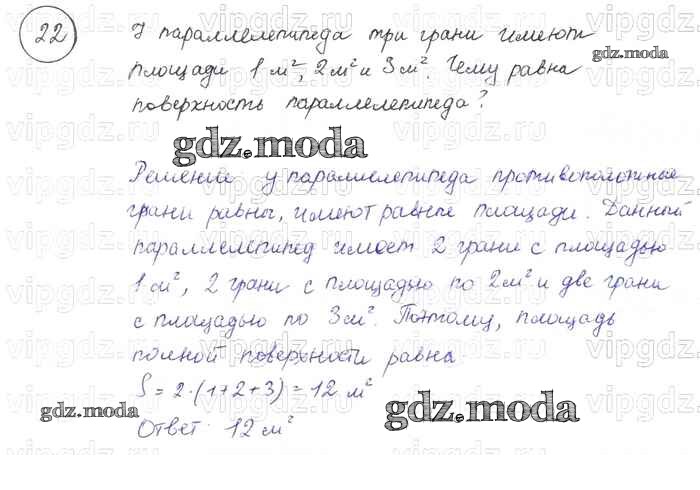 22
У параллелепипеда три грани имеют
площади 1 м², 2 м² и 3 м². Чему равна
поверхность параллелепипеда?
Решение у параллелепипеда противоположные
грани равны, имеют равные площади. Данный
параллелепипед имеет 2 грани с площадью
1 см², 2 грани с площадью по 2 м² и две грани
с площадью по 3 м². Поэтому, площадь
полной поверхности равна
S = 2·(1+2+3) = 12 м²
Ответ: 12 м²
gdz.moda
gdz.moda
gdz.moda
gdz.moda
vipgdz.ru